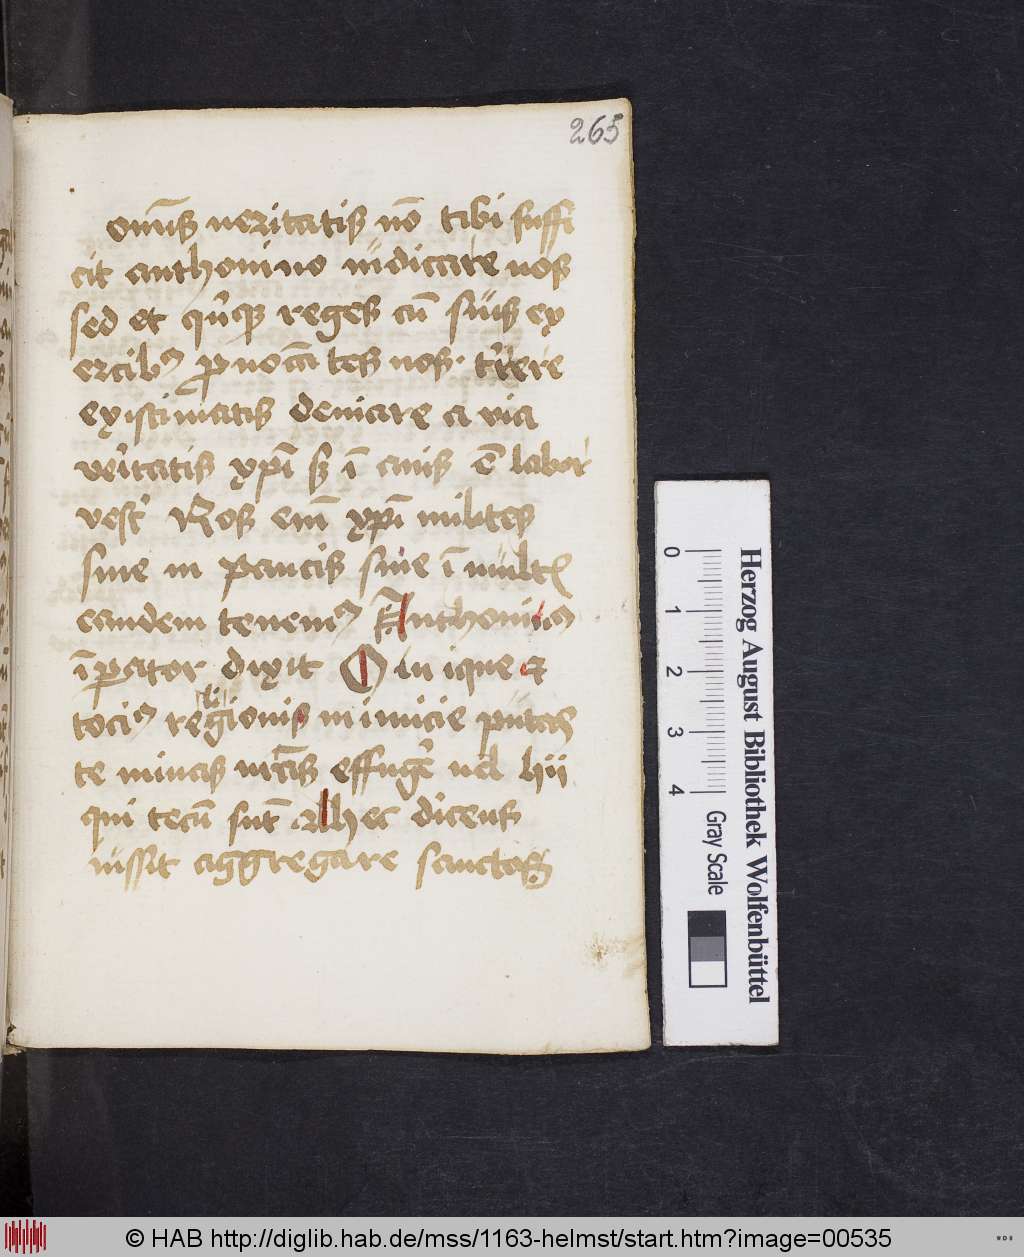 265
om̄is ueritatis nō tibi suffi
cit anthonino iudicare nos
sed et qn̄q reges cū suis ex
ercibꝰ ꝓuocātes nos. tr̄ere
existimatis deuiare a via
ueritatis xpī sꝫ ī anīs ē labor
vesṫ Nos eni xpī milites
siue in paucis siue ī multꝭ
eandem tenemꝰ Anthoninꝰ
īperator dixit O inique et
tociꝰ religionis inimicie putas
te minas nr̄as effuge᷑ uel hii
qui tecū sūt Et hec dicens
iussit aggregare sanctos
Herzog August Bibliothek Wolfenbüttel
0 1 2 3 4 Gray Scale
© HAB http://diglib.hab.de/mss/1163-helmst/start.htm?image=00535